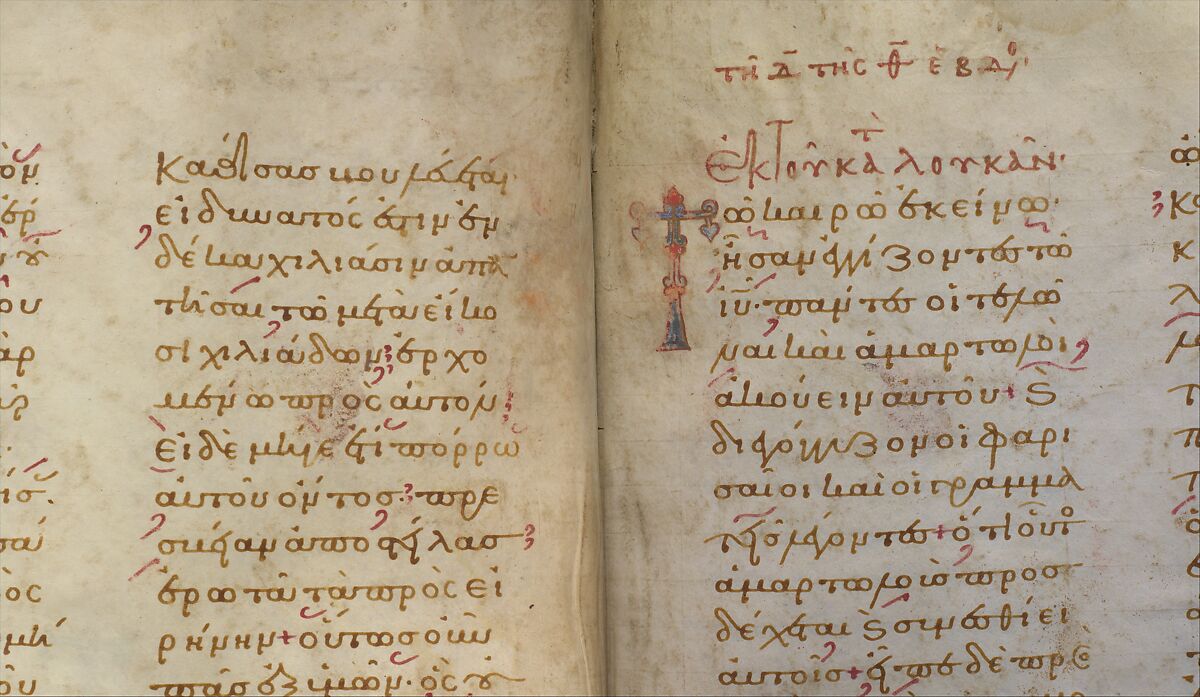 καθίσας βουλεύεται·
εἰ δυνατός ἐστιν ἐν
δέκα χιλιάσιν ἀπαν
τῆσαι τῶ μετὰ εἴκο
σι χιλιάδων ἐρχο
μένω πρὸς αὐτόν
εἰ δὲ μήγε ἔτι πόρρω
αὐτοῦ ὄντος πρε
σβείαν ἀποστείλας
ἐρωτᾶ τὰ πρὸς εἰ
ρήνην + οὕτως οὖν
πᾶς ἐξ ὑμῶν· ὃς οὐ
τῆ Δ τῆς Θ ἑβδο
ἐκ τοῦ κατὰ λουκᾶν·
Τῶ καιρῶ ἐκείνω·
ἦσαν ἐγγίζοντες τῶ
ἰῦ· πάντες οἱ τελῶ
ναι καὶ ἁμαρτωλοὶ
ἀκούειν αὐτοῦ + ϗ
διεγόγγυζον οἱ φαρι
σαῖοι καὶ οἱ γραμμα
τεῖς λέγοντες + ὅτι οὗτο
ἁμαρτωλοὺς προσ
δέχεται ϗ συνεσθίει
αὐτοῖς + εἶπε δὲ πρὸ